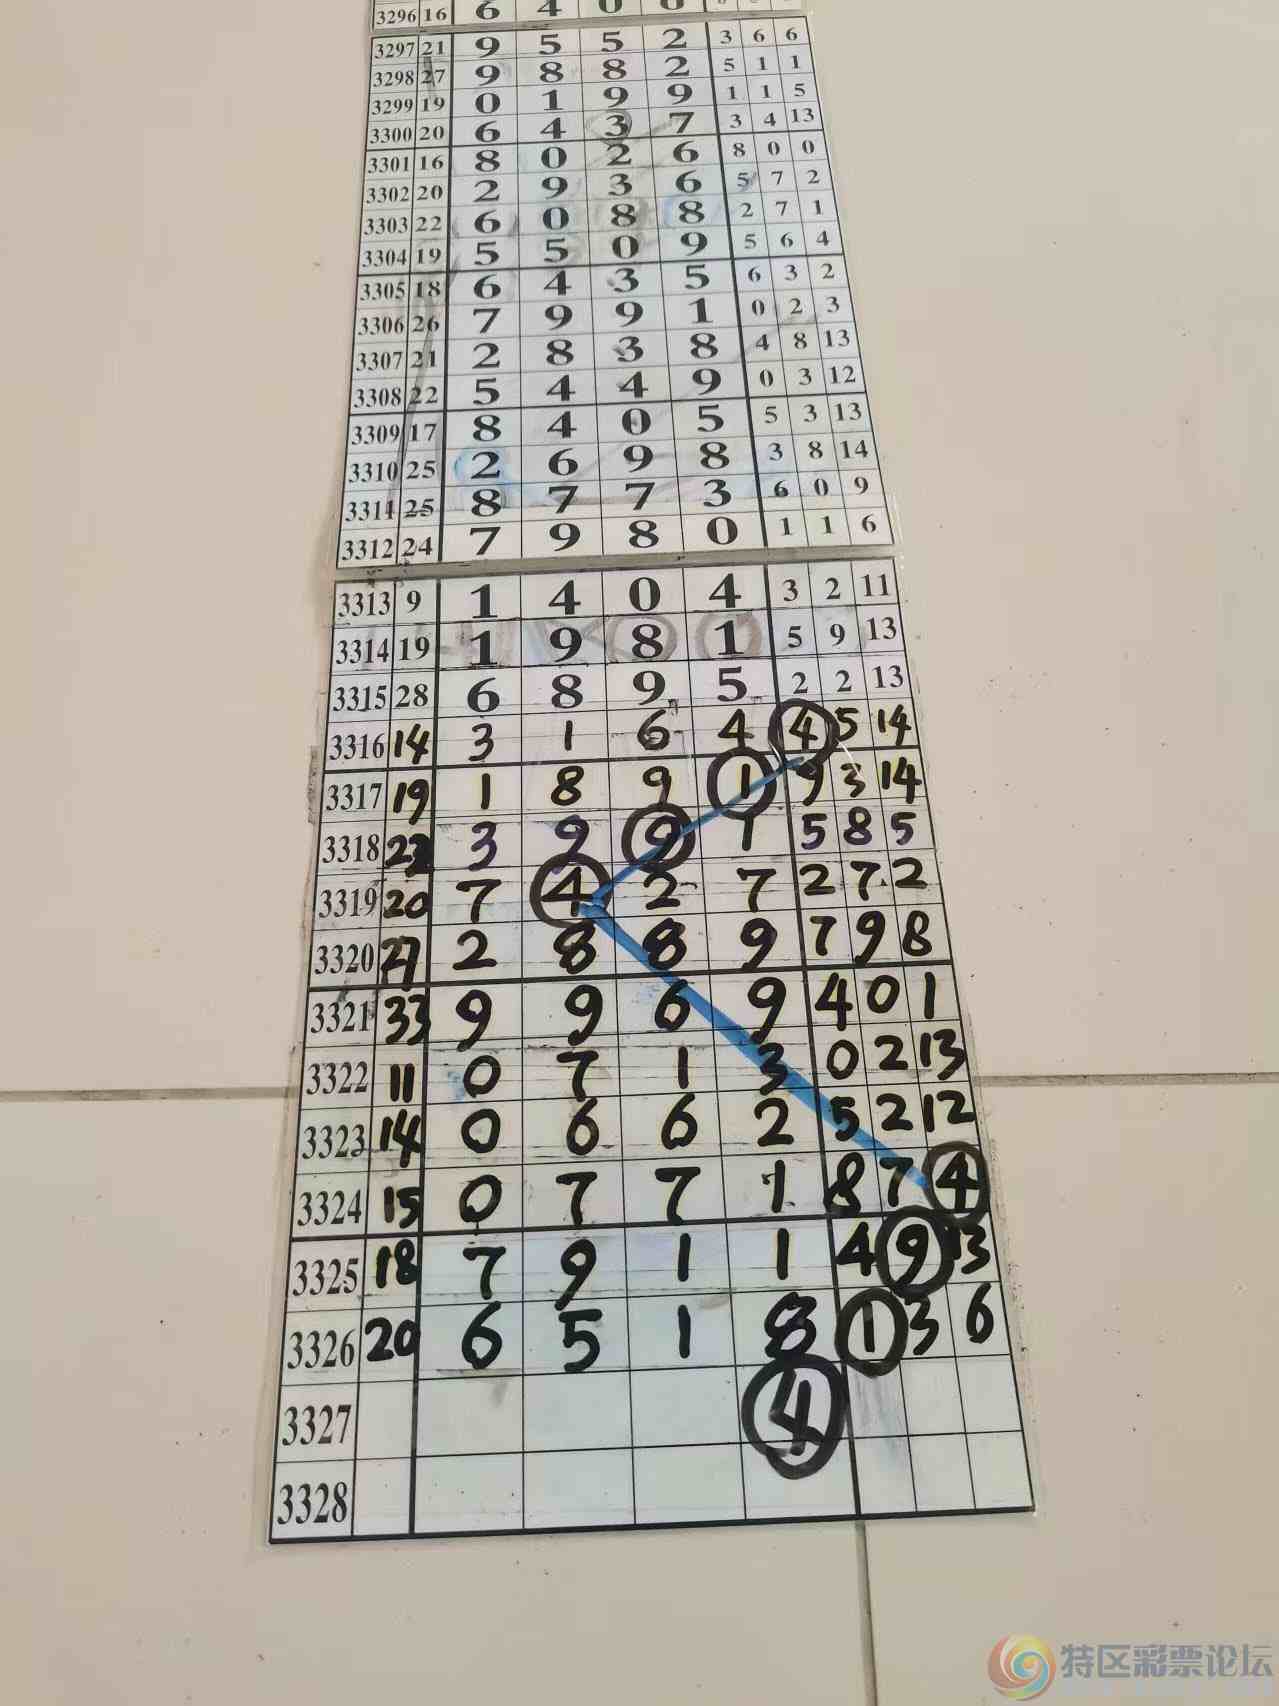 3296 16 6 4 0 8
3297 21 9 5 5 2 3 6 6
3298 27 9 8 8 2 5 1 1
3299 19 0 1 9 9 1 1 5
3300 20 6 4 3 7 3 4 13
3301 16 8 0 2 6 8 0 0
3302 20 2 9 3 6 5 7 2
3303 22 6 0 8 8 2 7 1
3304 19 5 5 0 9 5 6 4
3305 18 6 4 3 5 6 3 2
3306 26 7 9 9 1 0 2 3
3307 21 2 8 3 8 4 8 13
3308 22 5 4 4 9 0 3 12
3309 17 8 4 0 5 5 3 13
3310 25 2 6 9 8 3 8 14
3311 25 8 7 7 3 6 0 9
3312 24 7 9 8 0 1 1 6
3313 9 1 4 0 4 3 2 11
3314 19 1 9 8 1 5 9 13
3315 28 6 8 9 5 2 2 13
3316 14 3 1 6 4 4 5 14
3317 19 1 8 9 1 9 3 14
3318 22 3 9 9 1 5 8 5
3319 20 7 4 2 7 2 7 2
3320 27 2 8 8 9 7 9 8
3321 33 9 9 6 9 4 0 1
3322 11 0 7 1 3 0 2 13
3323 14 0 6 6 2 5 2 12
3324 15 0 7 7 1 8 7 4
3325 18 7 9 1 1 4 9 13
3326 20 6 5 1 8 1 3 6
3327 4
3328
特区彩票论坛